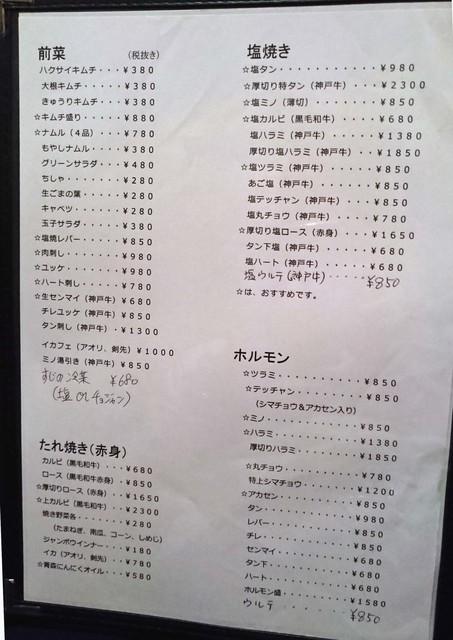 前菜 (税抜き)
ハクサイキムチ・・・¥380
大根キムチ・・・¥380
きゅうりキムチ・・・¥380
☆キムチ盛り・・・¥880
☆ナムル（4品）・・・¥780
もやしナムル・・・¥380
グリーンサラダ・・・¥480
ちしゃ・・・¥280
生ごまの葉・・・¥280
キャベツ・・・¥280
玉子サラダ・・・¥380
☆塩焼レバー・・・¥850
☆肉刺し・・・¥980
☆ユッケ・・・¥980
☆ハート刺し・・・¥780
☆生センマイ（神戸牛）¥680
チレユッケ（神戸牛）¥850
タン刺し（神戸牛）・¥1300
イカフェ（アオリ、剣先）¥1000
ミノ湯引き（神戸牛）¥850
すじの冷菜 ¥680
（塩 or チョジャン）
たれ焼き(赤身)
カルビ（黒毛和牛）・・・¥680
ロース（黒毛和牛赤身）・¥850
☆厚切りロース（赤身）・¥1650
☆上カルビ（黒毛和牛）・¥2300
焼き野菜各・・・・・¥280
（たまねぎ、南瓜、コーン、しめじ）
ジャンボウインナー・・¥180
イカ（アオリ、剣先）・・¥780
☆青森にんにくオイル・・¥580
塩焼き
☆塩タン・・・・・・・・・・・¥980
☆厚切り特タン（神戸牛）・・・¥2300
☆塩ミノ（薄切）・・・・・¥850
☆塩カルビ（黒毛和牛）・・・¥680
塩ハラミ（神戸牛）・・・・¥1380
厚切り塩ハラミ（神戸牛）・・¥1850
☆塩ツラミ（神戸牛）・・・・¥850
あご塩（神戸牛）・・・・・¥850
塩テッチャン（神戸牛）・・・¥850
塩丸チョウ（神戸牛）・・・¥780
☆厚切り塩ロース（赤身）・・・¥1650
タン下塩（神戸牛）・・・・¥680
塩ハート（神戸牛）・・・・¥680
塩ウルテ（神戸牛）・・・・・¥850
☆は、おすすめです。
ホルモン
☆ツラミ・・・・・・・・・・¥850
☆テッチャン・・・・・・・・¥850
（シマチョウ＆アカセン入り）
☆ミノ・・・・・・・・・・¥850
☆ハラミ・・・・・・・・・¥1380
厚切りハラミ・・・・・・¥1850
☆丸チョウ・・・・・・・・¥780
特上シマチョウ・・・・・¥1200
☆アカセン・・・・・・・・¥850
タン・・・・・・・・・・¥980
レバー・・・・・・・・・¥850
チレ・・・・・・・・・・¥850
センマイ・・・・・・・・¥680
タン下・・・・・・・・・¥680
ハート・・・・・・・・・¥680
ホルモン盛・・・・・・・¥1580
ウルテ・・・・・・・・¥850